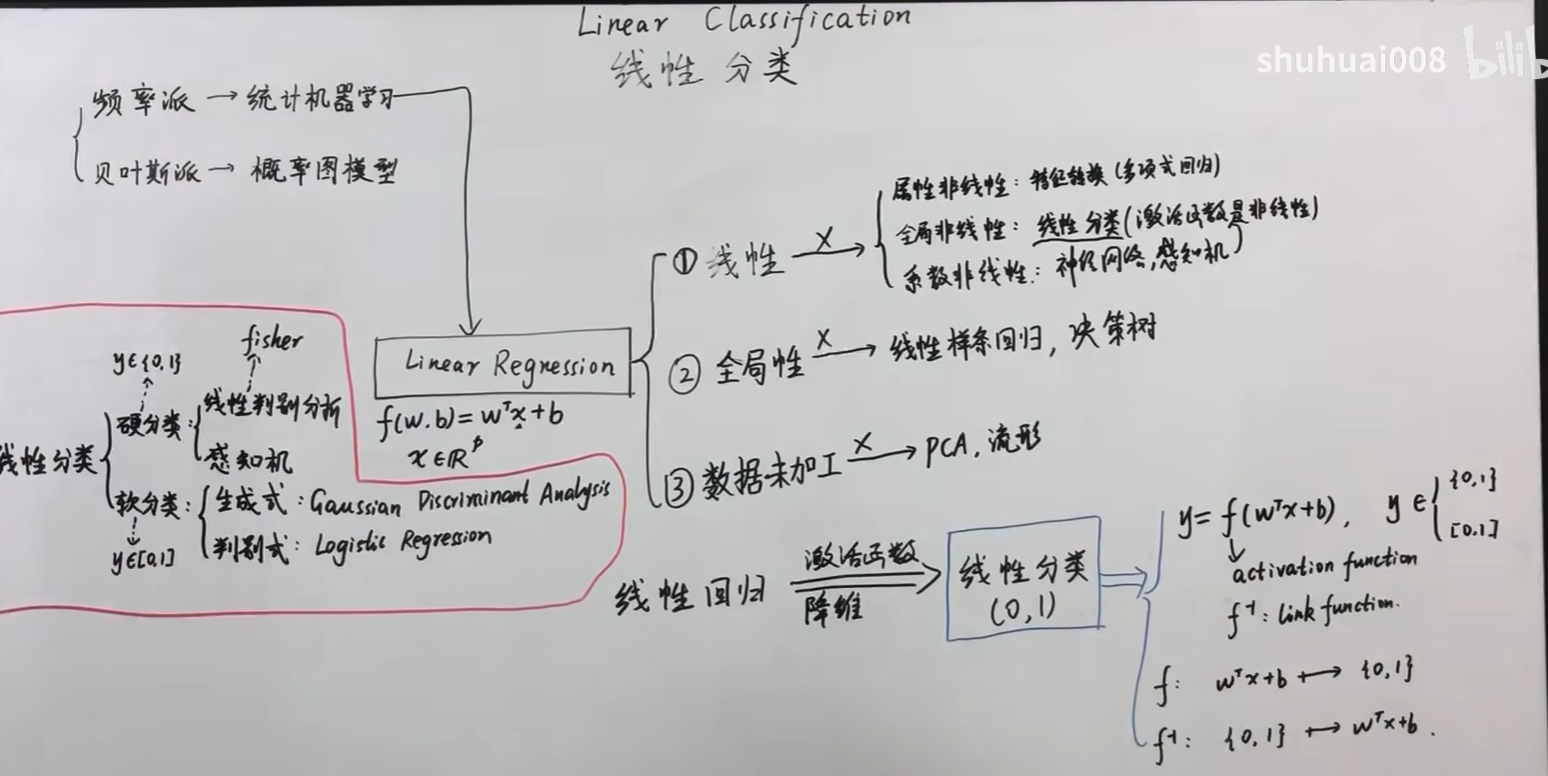 Linear Classification
线性分类
shuhuai008 bilib
频率派 → 统计机器学习
贝叶斯派 → 概率图模型
Linear Regression
f(w.b)=wᵀx+b
x∈ℝᵖ
① 线性 X→
属性非线性：特征转换(多项式回归)
全局非线性：线性分类(激活函数是非线性)
系数非线性：神经网络,感知机
② 全局性 X→ 线性样条回归，决策树
③ 数据未加工 X→ PCA，流形
线性分类
y∈{0,1}
fisher
硬分类：
线性判别分析
感知机
软分类：
生成式：Gaussian Discriminant Analysis
判别式：Logistic Regression
y∈[0,1]
线性回归
激活函数
降维
线性分类
(0,1)
y=f(wᵀx+b)，y∈
{0,1}
[0,1]
activation function
f⁻¹：link function.
f： wᵀx+b ↦ {0,1}
f⁻¹： {0,1} ↦ wᵀx+b.